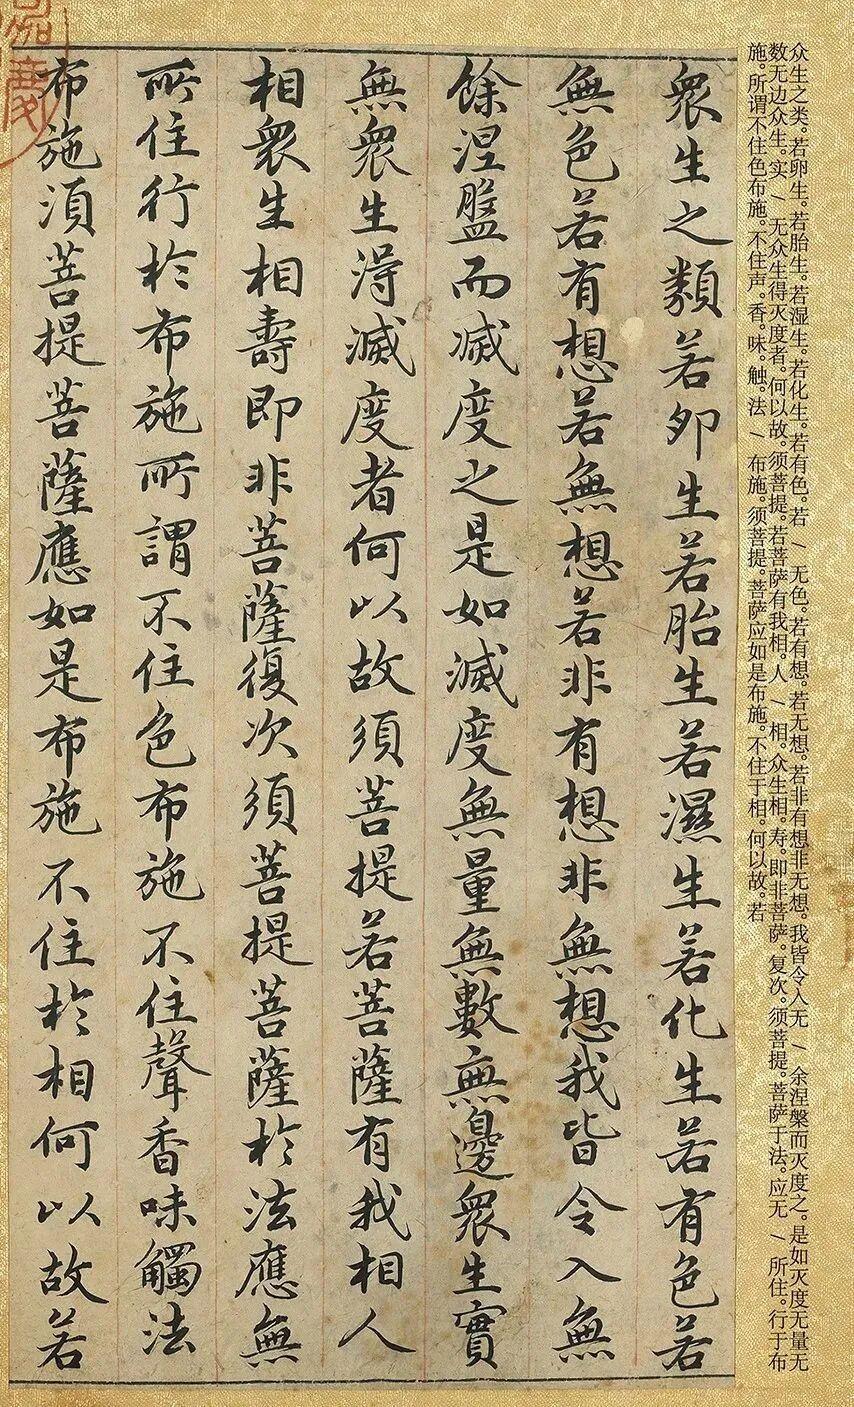 众生之类。若卵生。若胎生。若湿生。若化生。若有色。若 / 无色。若有想。若无想。若非有想非无想。我皆令入无 / 余涅槃而灭度之。是如灭度无量无
数无边众生。实 / 无众生得灭度者。何以故。须菩提。若菩萨有我相。人 / 相。众生相。寿。即非菩萨。复次。须菩提。菩萨于法。应无 / 所住。行于布
施。所谓不住色布施。不住声。香。味。触。法 / 布施。须菩提。菩萨应如是布施。不住于相。何以故。若
衆生之類若卵生若胎生若濕生若化生若有色若
無色若有想若無想若非有想非無想我皆令入無
餘涅盤而滅度之是如滅度無量無數無邊衆生實
無衆生得滅度者何以故須菩提若菩薩有我相人
相衆生相壽即非菩薩復次須菩提菩薩於法應無
所住行於布施所謂不住色布施不住聲香味觸法
布施須菩提菩薩應如是布施不住於相何以故若